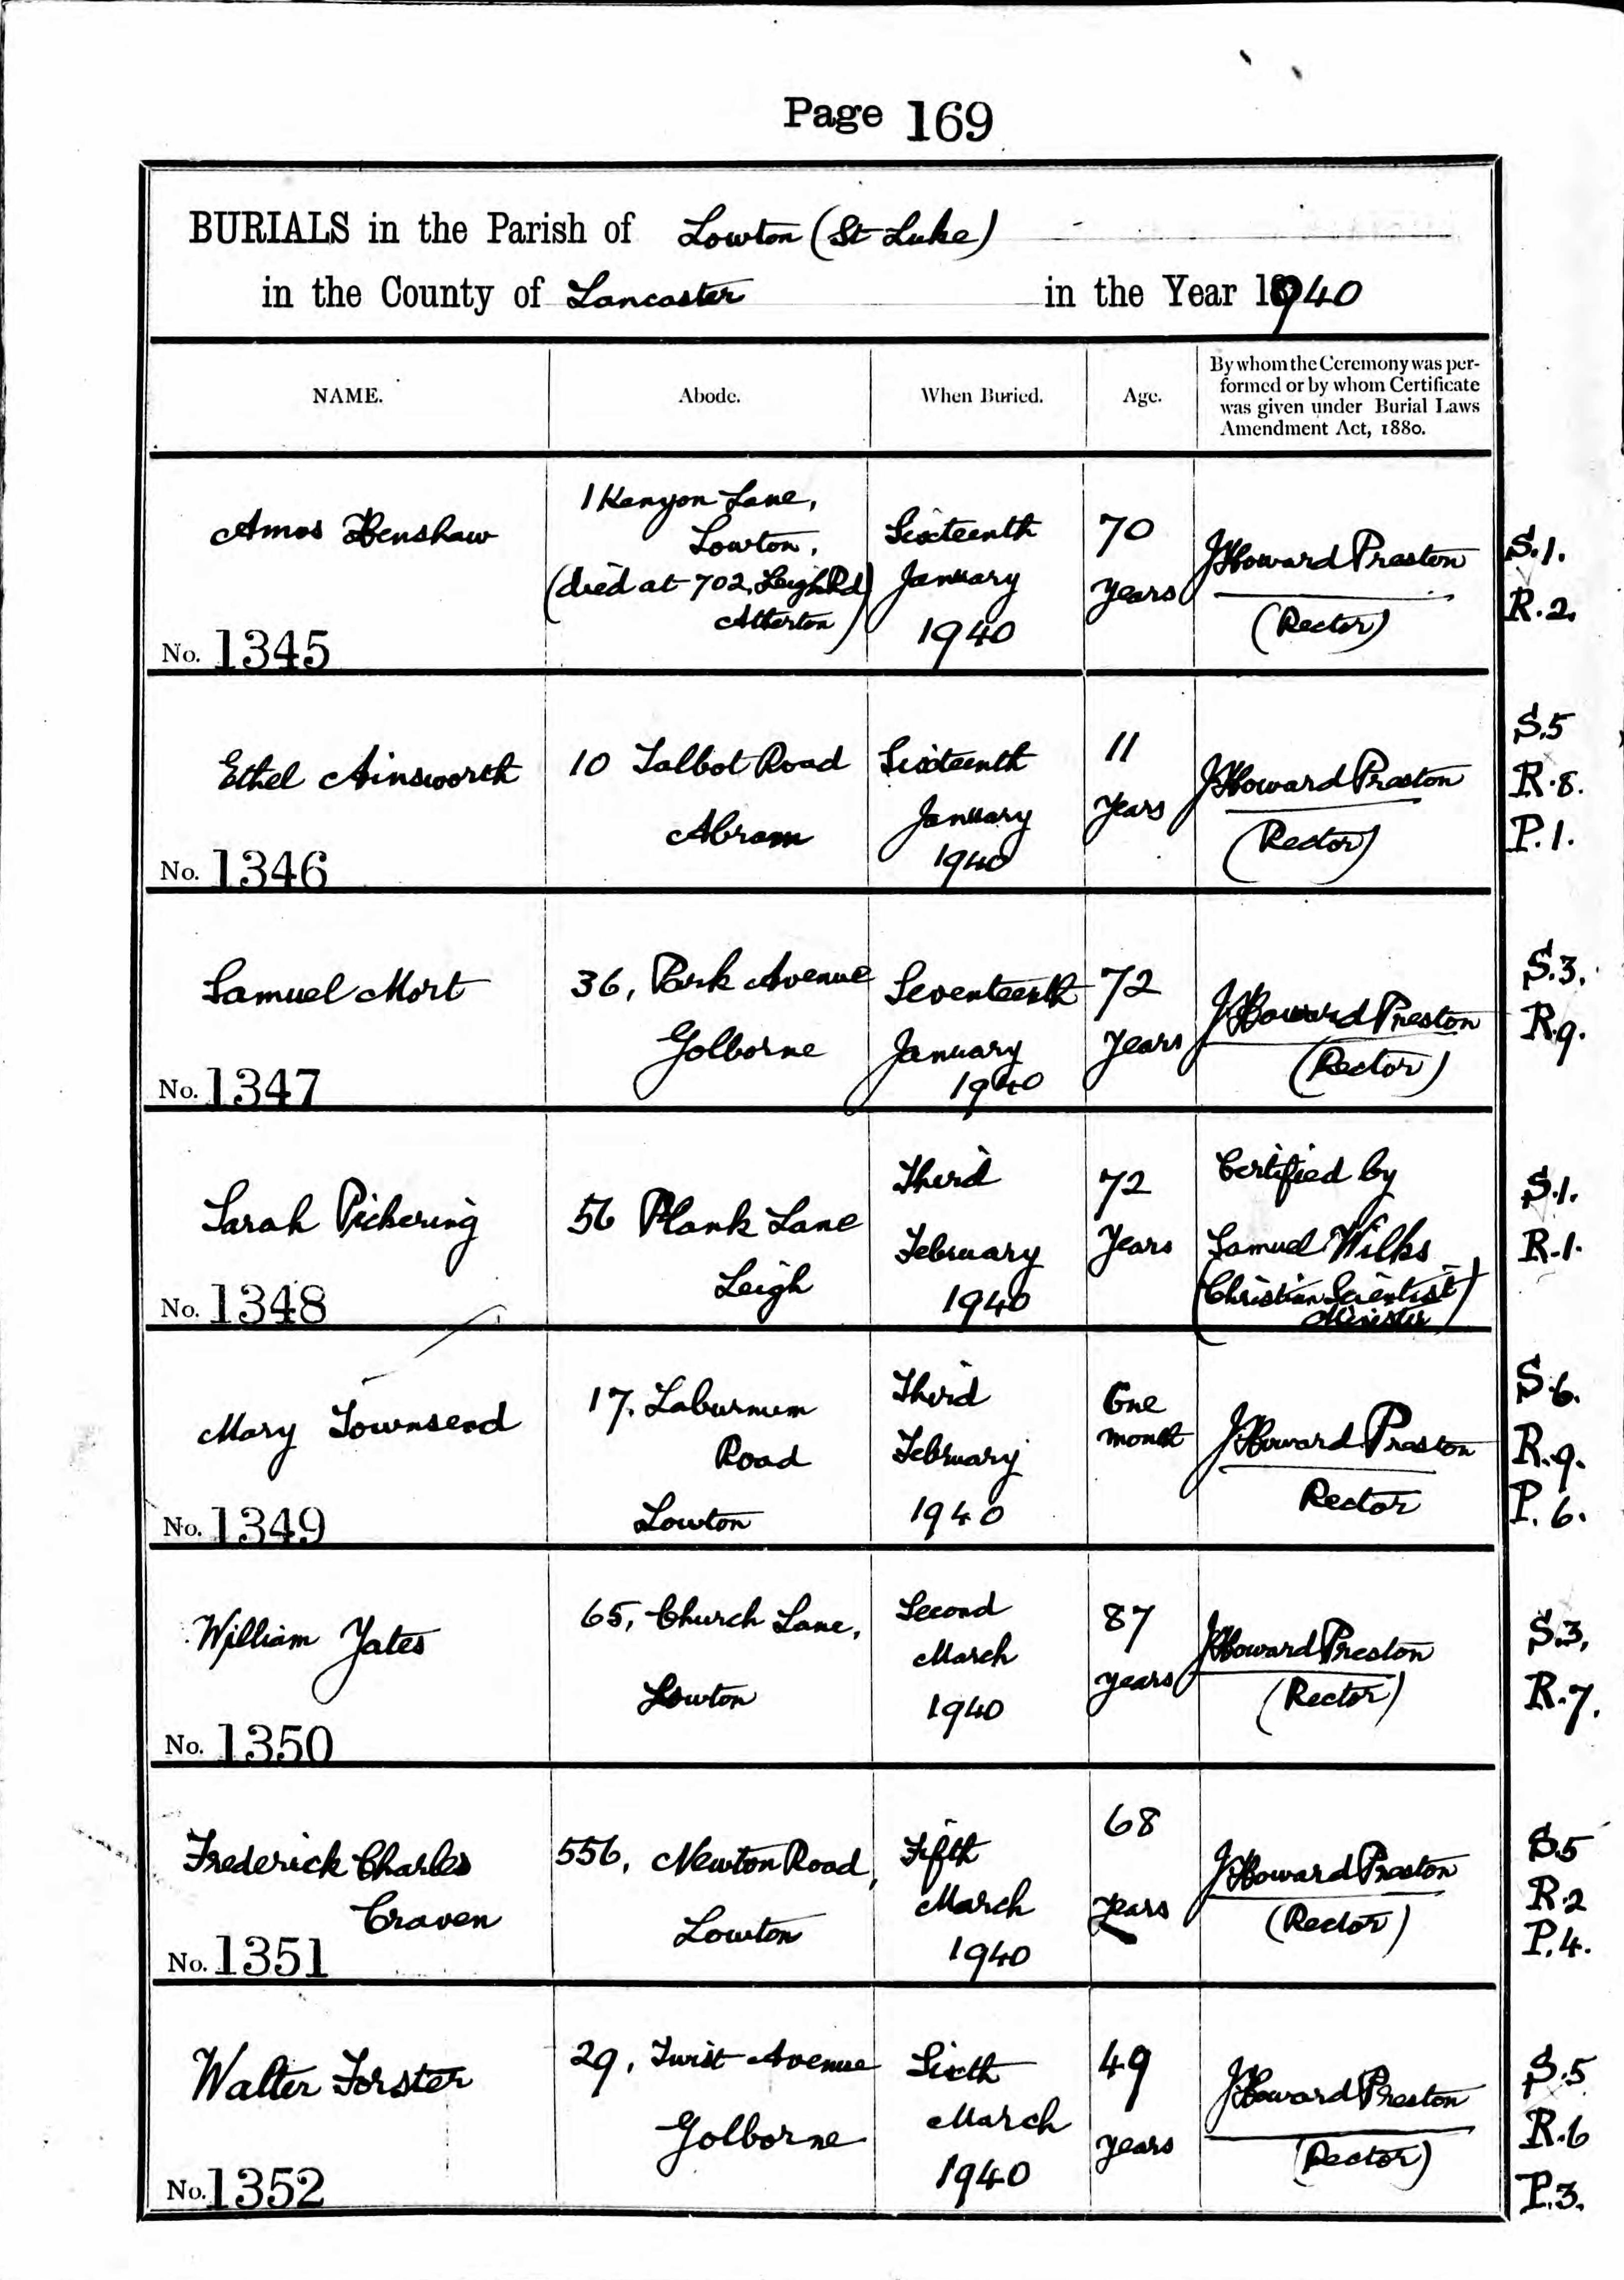 Page 169
BURIALS in the Parish of Lowton (St Luke)
in the County of Lancaster in the Year 1940
NAME.
Abode.
When Buried.
Age.
By whom the Ceremony was per-
formed or by whom Certificate
was given under Burial Laws
Amendment Act, 1880.
Amos Henshaw
No. 1345
1 Kenyon Lane,
Lowton,
(died at 702, Leigh Rd
Atherton)
Sixteenth
January
1940
70
years
J Howard Preston
(Rector)
S.1.
R.2.
Ethel Ainsworth
No. 1346
10 Talbot Road
Abram
Sixteenth
January
1940
11
years
J Howard Preston
(Rector)
S.5
R.8.
P.1.
Samuel Mort
No. 1347
36, Park Avenue
Golborne
Seventeenth
January
1940
72
years
J Howard Preston
(Rector)
S.3.
R.9.
Sarah Pickering
No. 1348
56 Plank Lane
Leigh
Third
February
1940
72
Years
Certified by
Samuel Wilks
(Christian Scientist
Minister)
S.1.
R.1.
Mary Townsend
No. 1349
17, Laburnum
Road
Lowton
Third
February
1940
One
month
J. Howard Preston
Rector
S.6.
R.9.
P.6.
William Yates
No. 1350
65, Church Lane,
Lowton
Second
March
1940
87
years
J Howard Preston
(Rector)
S.3,
R.7.
Frederick Charles
Craven
No. 1351
556, Newton Road,
Lowton
Fifth
March
1940
68
years
J. Howard Preston
(Rector)
S.5
R.2
P.4.
Walter Forster
No. 1352
29, Twist Avenue
Golborne
Sixth
March
1940
49
years
J Howard Preston
(Rector)
S.5
R.6
P.3.